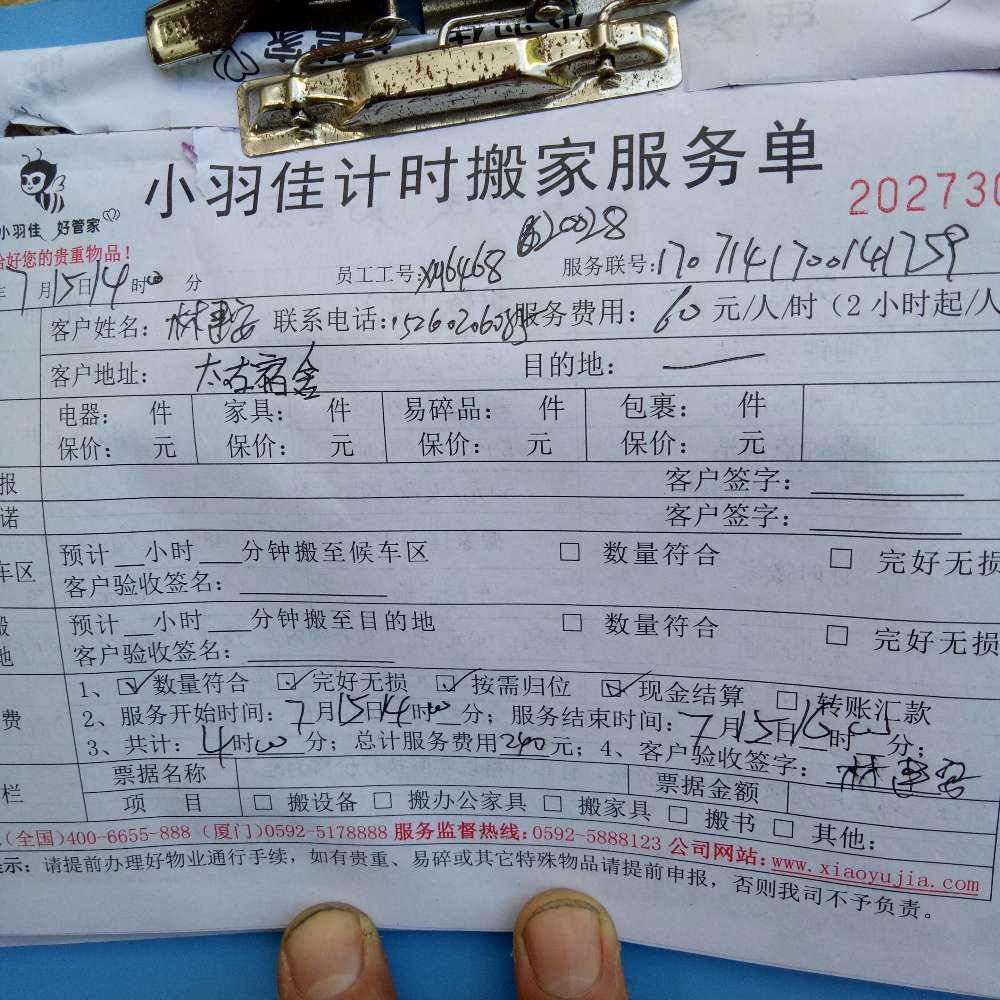 小羽佳计时搬家服务单
202730
小羽佳 好管家
好您的贵重物品！
7月15日14时00分 员工工号：XM6468 620028 服务联号：1707141700141759
客户姓名：林建安 联系电话： 服务费用：60元/人/时（2小时起/人
客户地址：太古宿舍 目的地：
电器： 件 家具： 件 易碎品： 件 包裹： 件
保价： 元 保价： 元 保价： 元 保价： 元
报 客户签字：
诺 客户签字：
预计__小时___分钟搬至候车区 □ 数量符合 □ 完好无损
车区 客户验收签名：
预计__小时___分钟搬至目的地 □ 数量符合 □ 完好无损
地 客户验收签名：
1、☑数量符合 ☑完好无损 ☑按需归位 ☑现金结算 □转账汇款
费 2、服务开始时间：7月15日14时00分；服务结束时间：7月15日16时00分；
3、共计：4时00分；总计服务费用240元；4、客户验收签字：林建安
栏 票据名称 票据金额
项 目 □ 搬设备 □ 搬办公家具 □ 搬家具 □ 搬书 □ 其他：
(全国)400-6655-888 (厦门)0592-5178888 服务监督热线：0592-5888123 公司网站：www.xiaoyujia.com
示：请提前办理好物业通行手续，如有贵重、易碎或其它特殊物品请提前申报，否则我司不予负责。